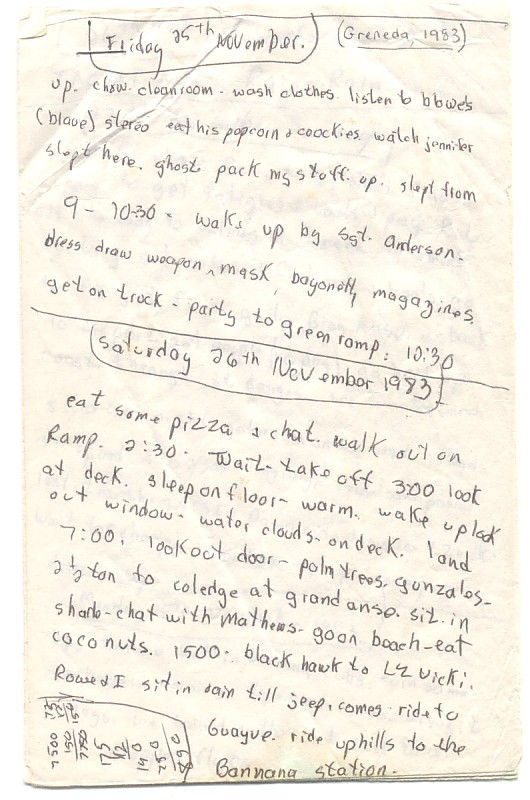 Friday 25th November. (Greneda, 1983)
up. chow. cleanroom - wash clothes. listen to blowes
(blaue) stereo eat his popcorn & coockies. watch jennifer
slept here. ghost pack my stoff up. slept from
9 - 10:30 - waks up by Sgt. Anderson.
dress draw woapon, mask, bayonett, magazines.
get on truck - party to green ramp. 10:30
Saturday 26th November 1983.
eat some pizza & chat. walk out on
Ramp. 2:30. Wait - take off 3:00 look
at deck. sleep on floor - warm. wake up look
out window - water clouds - on deck. land
7:00. lookout door - palm trees, gunzalos -
2½ ton to coledge at grand anse. sit. in
shade - chat with Mathews - goon beach - eat
coconuts. 1500 - black hawk to LZ Vicki.
Rowe & I sit in rain till jeep comes. ride to
Guayue. ride uphills to the
Bannana station.